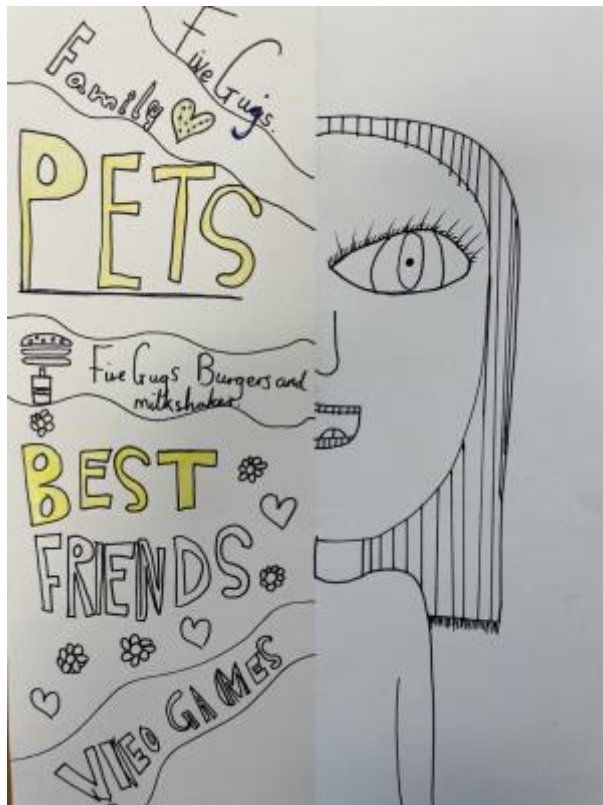 Five Gugs.
Family
PETS
Five Gugs Burgers and
milkshakes.
BEST
FRIENDS
VIDEO GAMES